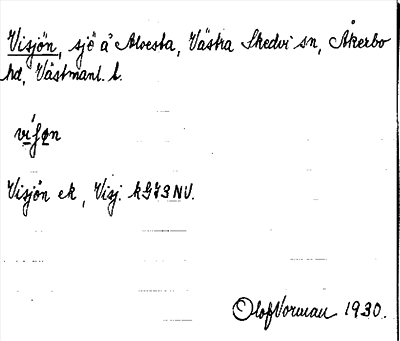 Visjön, sjö å Alvesta, Västra Skedvi sn, Åkerbo
hd, Västmanl. l.
Visjön ek, Visj. kG73NV.
Olof Norman 1930.